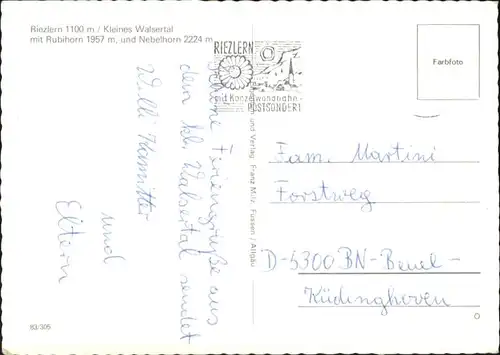 Riezlern 1100 m / Kleines Walsertal
mit Rubihorn 1957 m, und Nebelhorn 2224 m
RIEZLERN
mit Kanzelwandbahn
POSTSONDERT
Farbfoto
Schöne Feriengrüße aus
dem kl. Walsertal sendet
Willi
und
Eltern
und Verlag Franz Milz, Füssen / Allgäu
Fam. Martini
Forstweg
D-5300 BN-Beuel-
Küdinghoven
83/305